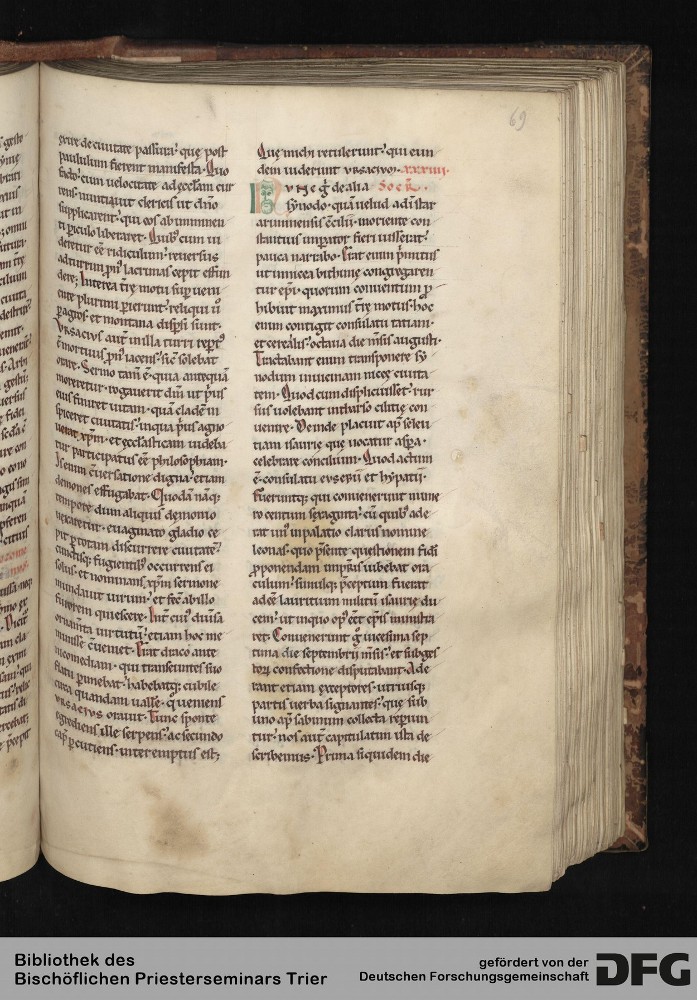 69
exire de civitate passura; que post
paululum fierent manifesta. Quo
facto cum velocitate ad ecclesiam cur
rens nuntiavit clericis ut dn̄o
supplicarent; qui eos ab imminen
ti periculo liberaret. Quib; cum vi
deretur eē ridiculum; reversus
ad turrim pn; lacrimas cepit effun
dere; Interea terre motu superveni
ente plurimi perierunt; reliqui v̄
per agros; et montana dispersi sunt.
Ursacius aut̄ in illa turri rept;
ē mortuus pn; iacens; sic̄ solebat
orare. Sermo tam̄ ē. quia antequā
moreretur; rogaverit dn̄m ut p̄us
eius finiret vitam. quā cladē in
spiceret civitatis; in qua p̄us agno
verat xp̄m. et ecclasticam videba
tur participatus eē philosophiam.
demones effugabat. Quodā nāq;
tempore dum aliquis demonio
vexaretur. evaginato gladio ce
pit per totam discurrere civitatē;
cunctisq; fugientib; occurrens ei
solus. et nominans xp̄m sermone
mundavit virum. et fec̄ ab illo
furorem quiescere. Int̄ cui; diversa
ornam̄ta virtutū; etiam hoc me
minisse c̄venit. Erat draco ante
nicomediam. qui transeuntes suo
flatu perimebat. habebatq; cubile
circa quandam valle. q̄ veniens
Ursacius oravit. Tunc sponte
egrediens ille serpens; ac secundo
cap̄ percutiens. interemptus est;
Que michi retulerunt; qui eun
dem viderunt ursaciū. xxxiiii.
Nunc ḡ de alia Socr̄.
synodo. quā velud ad instar
ariminensis c̄cilii. moriente con
stantius imperator fieri iusserat;
pauca narrabo. Erat enim p̄mitus
ut in nicea bithinie congregaren
tur ep̄i. quorum conventum p̄
hibuit maximus tr̄e motus. hoc
enim contigit consulatu tatiani.
et cerealis. octava die m̄sis augusti.
Tractabant enim transponere sy
nodum in vicinam nicee civita
tem. Quod cum displicuisset; rur
sus volebant in tharso cilicie con
venire. Deinde placuit ap̄ seleu
tiam isaurie que vocatur aspa.
celebrare concilium. Quod actum
ē. consulatu eusebii et hypatii.
Fueruntq; qui convenerunt nume
ro centum sexaginta. cū quib; ade
rat un; in palatio clarus nomine
leonas. quo p̄sente questionem fidei
proponendam imp̄ris iubebat ora
culum. similiq; p̄ceptum fuerat
adeē lauritium militū isaurie du
cem. ut in quo op; eēt ep̄is ministra
ret. Convenerunt ḡ vicesima sep
tima die septembrū m̄sis. et sub ges
torū confectione disputabant. Ade
rant etiam exceptores. utriusq;
partis verba signantes. que sub
uno ap̄ sabinum collecta reperiun
tur. nos aut̄ capitulatim ista de
scribemus. Prima siquidem die
Bibliothek des
Bischöflichen Priesterseminars Trier
gefördert von der
Deutschen Forschungsgemeinschaft
DFG